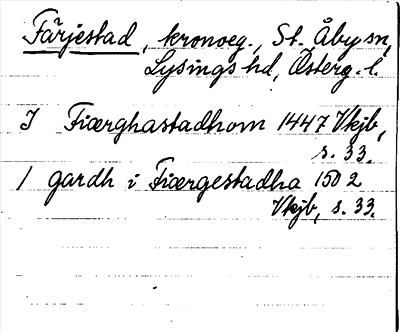 Färjestad, kronoeg., St. Åby sn,
Lysings hd, Österg. l.
I Fiærghastadhom 1447 Vkjb,
s. 33.
1 gardh i Fiærgestadha 1502
Vkjb, s. 33.